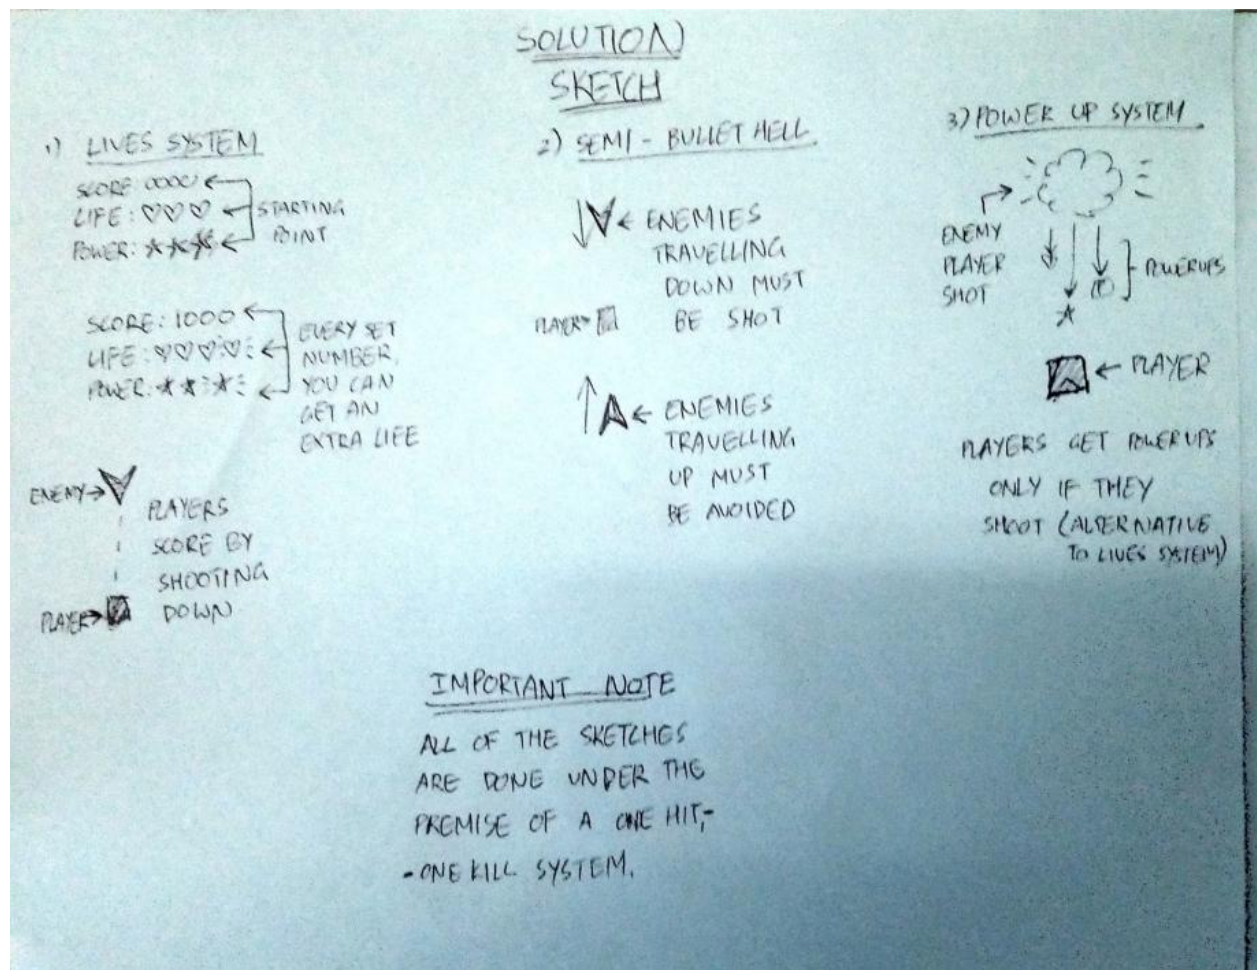 SOLUTION
SKETCH
1) LIVES SYSTEM
SCORE 0000
LIFE: ♡♡♡
POWER: ★★★
STARTING
POINT
SCORE: 1000
LIFE: ♡♡♡♡
POWER: ★★★
EVERY SET
NUMBER,
YOU CAN
GET AN
EXTRA LIFE
ENEMY→
PLAYERS
SCORE BY
SHOOTING
DOWN
PLAYER→
2) SEMI - BULLET HELL
← ENEMIES
TRAVELLING
DOWN MUST
BE SHOT
PLAYER→
← ENEMIES
TRAVELLING
UP MUST
BE AVOIDED
3) POWER UP SYSTEM
ENEMY
PLAYER
SHOT
POWERUPS
← PLAYER
PLAYERS GET POWERUPS
ONLY IF THEY
SHOOT (ALTERNATIVE
TO LIVES SYSTEM)
IMPORTANT NOTE
ALL OF THE SKETCHES
ARE DONE UNDER THE
PREMISE OF A ONE HIT,-
-ONE KILL SYSTEM.